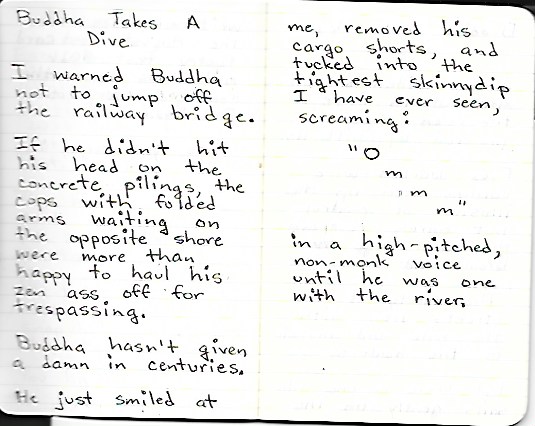 Buddha Takes A
Dive
I warned Buddha
not to jump off
the railway bridge.
If he didn't hit
his head on the
concrete pilings, the
cops with folded
arms waiting on
the opposite shore
were more than
happy to haul his
zen ass off for
trespassing.
Buddha hasn't given
a damn in centuries.
He just smiled at
me, removed his
cargo shorts, and
tucked into the
tightest skinnydip
I have ever seen,
screaming:
"O
m
m
m"
in a high-pitched,
non-monk voice
until he was one
with the river.